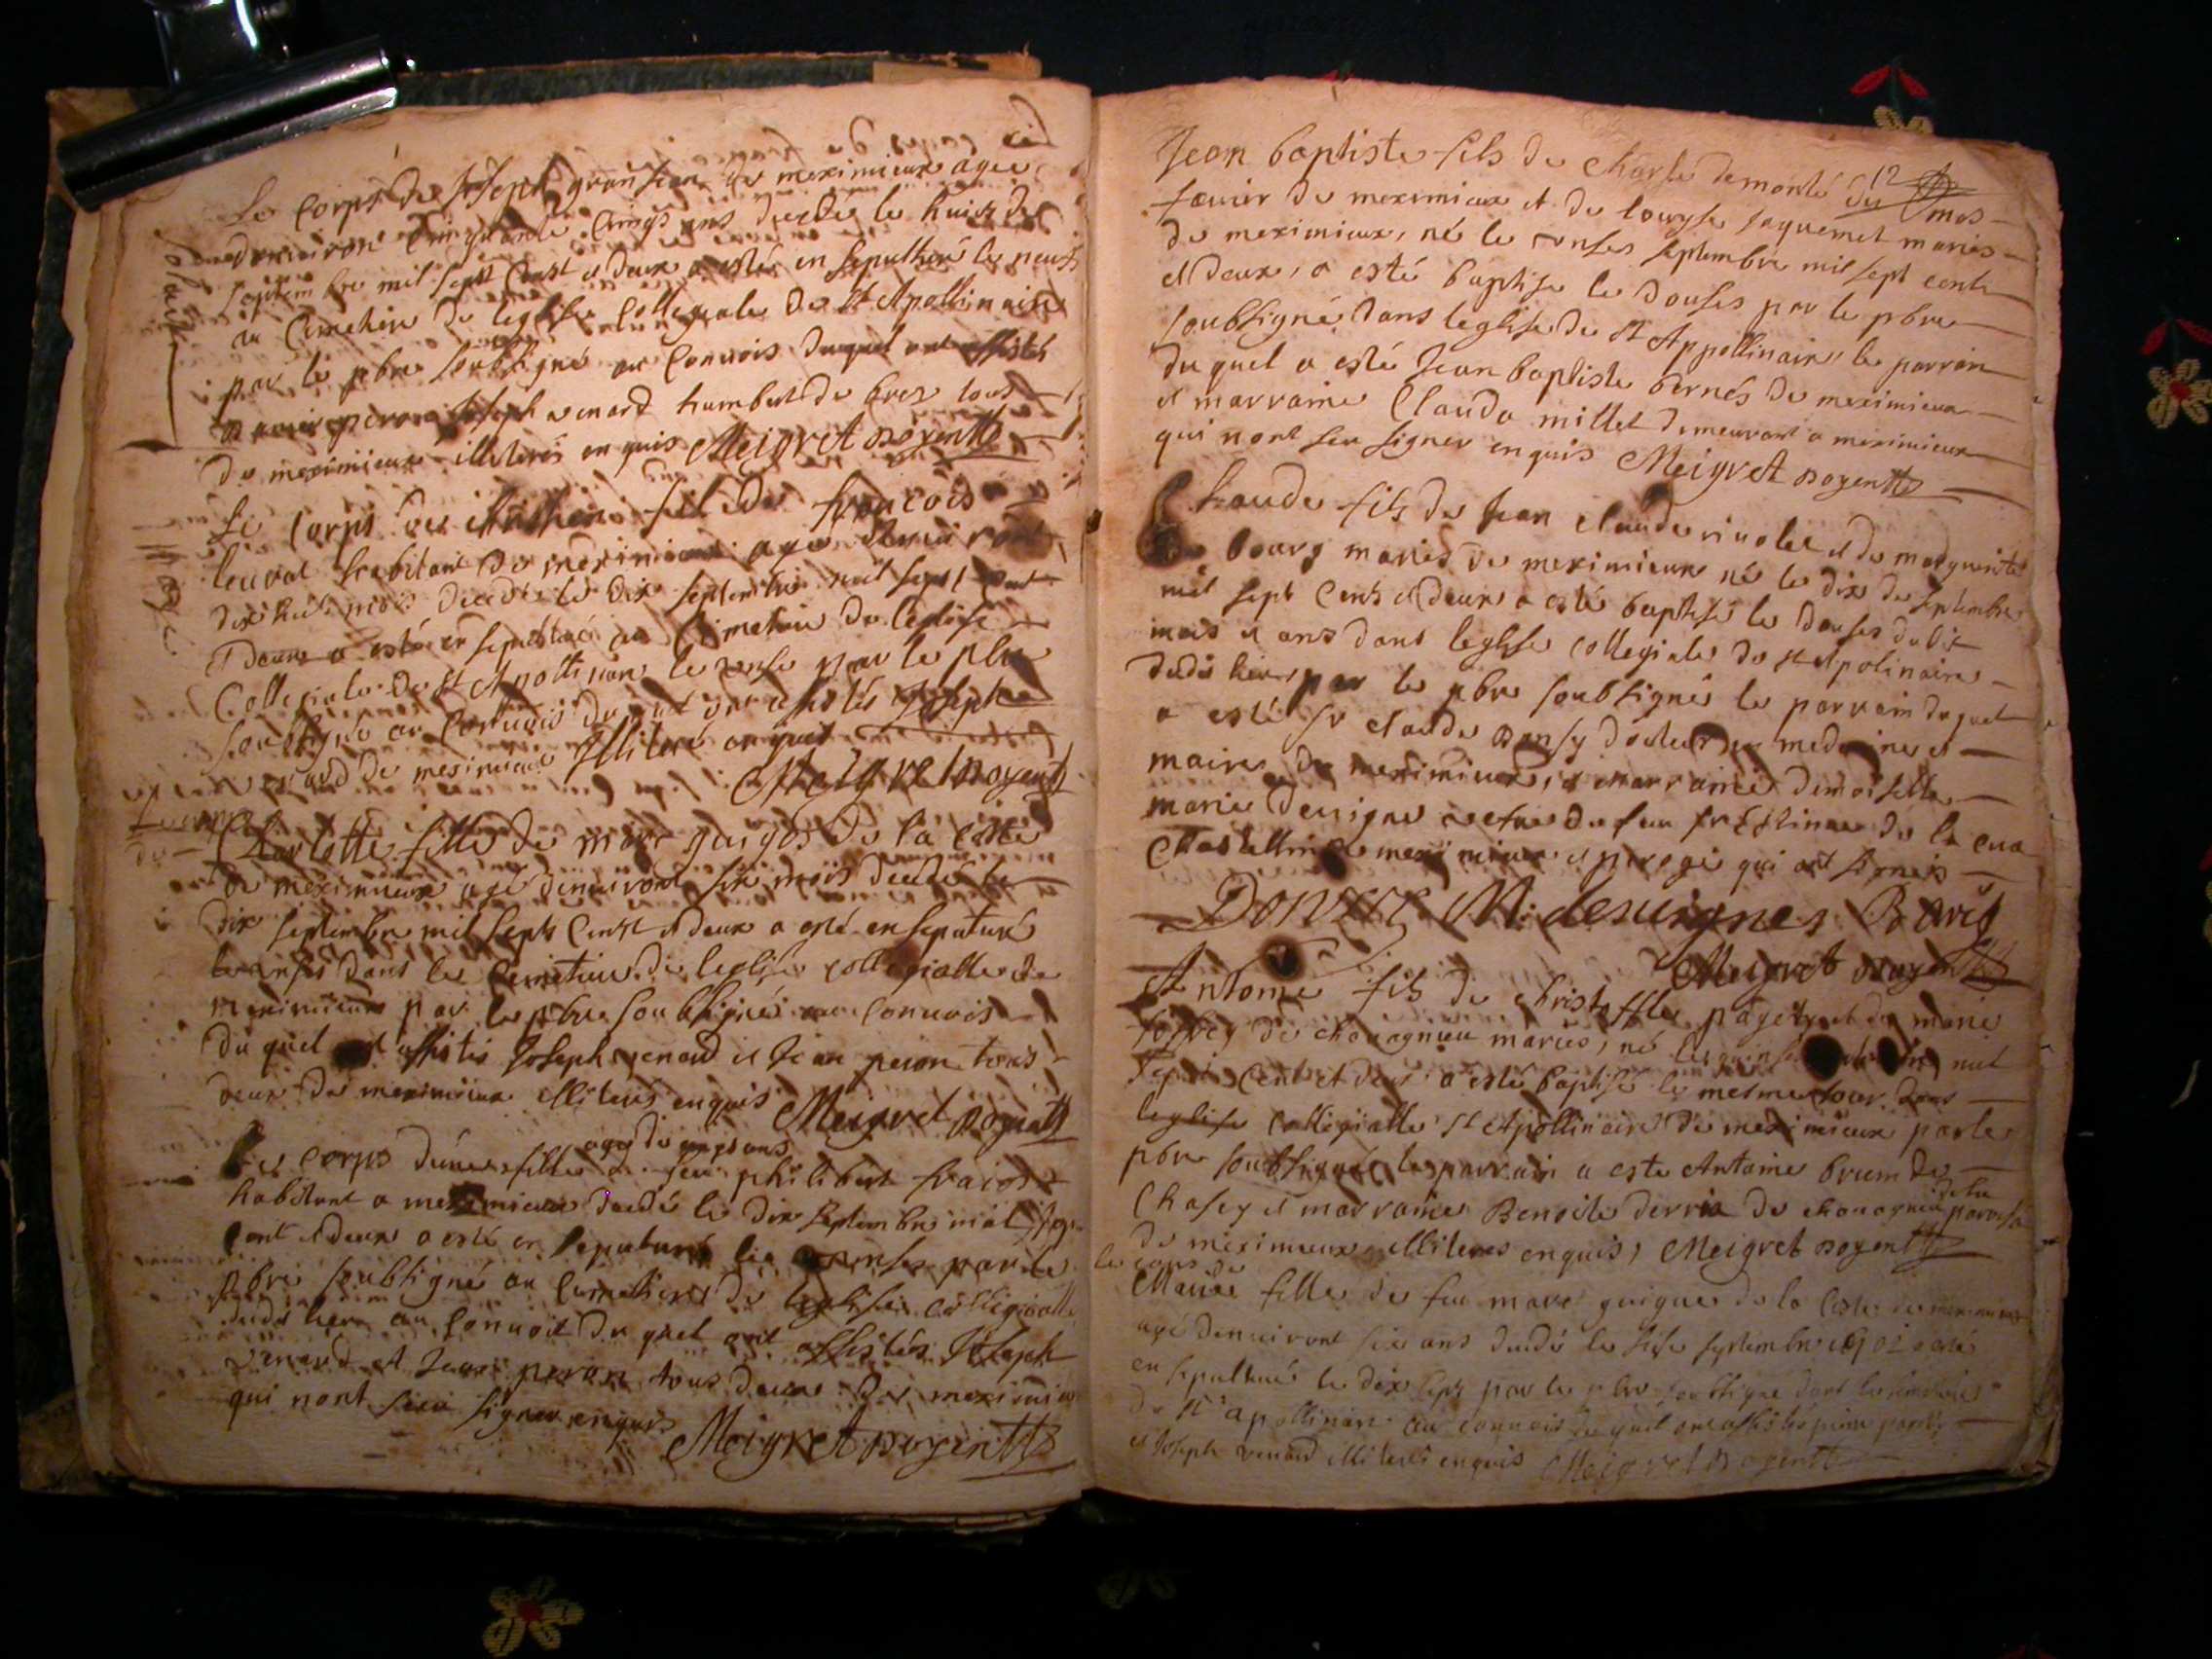 Le Corps de Joseph granjean de meximieux agee
denviron Cinquante Cinqs ans decedé le huict de
septembre mil sept Cent et deux a estée en sepulturé le neufs
au Cimetiere de leglise Collegiale de St Apollinaire
par le pbre soubsigné au Convois duquel ont assistés
peron Joseph venard humbert de brez tous
de meximieux illiterés enquis Meigret doyent
Le Corps de fils de francois
habitant de meximieux age denviront
dixhuit mois decede le dix septembre mil sept Cent
et Deux a esté en sepulturé au Cimetiere de leglise
Collegiale de St Apollinaire le onse par le pbre
soubsigné au Convois duquel ont assistés Joseph
venard de meximieux Illiteré enquis
Meigret doyent
Charlotte fille de marc guigos de la Coste
de meximieux agé denviront six mois decedé le
dix septembre mil sept Cent et deux a esté en sepulturé
le onses dans le Cimetiere de leglise collegialle de
meximieux par le pbre soubsigné au Convois
du quel ont assistés Joseph venard et Jean peron tous
deux de meximieux illiterés enquis Meigret doyent
agé de sept ans
Le corps dune fille de feu philibert
habitant a meximieux decedé le dix septembre mil sept
Cent et deux a esté en sepulturé le onses par le
pbre soubsigné au Cimetiere de leglise collegialle
dudit lieu au Convoit du quel ont assistés Joseph
venard et Jean peron tous deux de meximieux
qui nont sceu signer enquis
Meigret doyent
12
Jean baptiste fils de Charle demonté du mas
de meximieux et de louyse Jaquemet mariés
de meximieux, né le onses septembre mil sept cents
et deux, a esté baptise le douses par le pbre
soubsigné dans leglise de St Appollinaire le parrain
du quel a esté Jean baptiste bernés de meximieux
et marraine Clauda millet demeurant a meximieux
qui nont seu signer enquis Meigret doyent
Claude fils de Jean Claude rivolet et de marguerite
bourg mariés de meximieux né le dix de septembre
mil sept Cents et deux a esté baptisé le douses dudit
mois et ans dans leglise collegiale de st Apolinaire
dudit lieu par le pbre soubsigné le parrain duquel
a esté sr claude donsy docteur en medecine et
maire de meximieux, et marraine demoiselle
marie devigne
Chastellnie meximieux et peroge qui ont signés
M: desuignes
Meigret doyent
Antoine fils de christoffle pagetyet de marie
de chavagnieu mariés, né le quinse mil
sept Cents et deux a esté baptisé le mesme Jour dans
leglise Collegialle St Apollinaire de meximieux par le
pbre soubsigné le parrain a este Antoine brum de
Chasey et marraine Benoite derria de chavagnieu parroisse
de la
de meximieux illiterés enquis, Meigret doyent
le corps de
Mariee fille de feu marc guigue de la Coste de meximieux
agé denviront six ans decedé le seise septembre 1702 a esté
en sepulturé le dix sept par le pbre soubsigné dans le cimetiere
de St apollinaire au convois duquel ont assisté
et Joseph venard illiteré enquis Meigret doyent